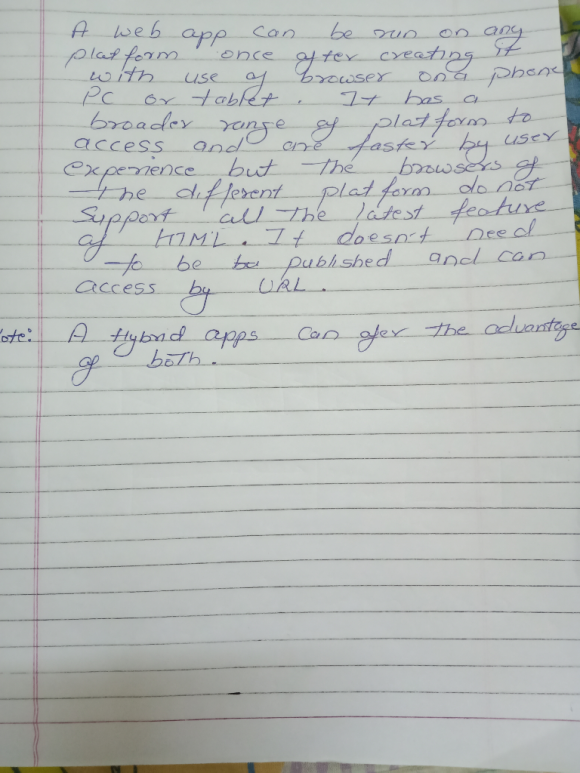 A web app can be run on any
platform once after creating it
with use of browser on a phone
PC or tablet. It has a
broader range of platform to
access and are faster by user
experience but the browsers of
the different platform do not
support all the latest feature
of HTML. It doesn't need
to be be published and can
access by URL.
ote: A Hybrid apps can ofer the advantage
of both.